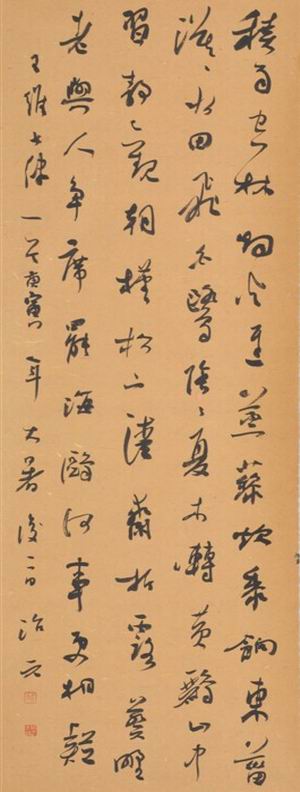 積雨空林烟火遲蒸藜炊黍餉東菑
漠〻水田飛白鷺陰〻夏木囀黃鸝山中
習靜觀朝槿松下清齋折露葵野
老與人爭席罷海鷗何事更相疑
王維七律一首庚寅年大暑後二日